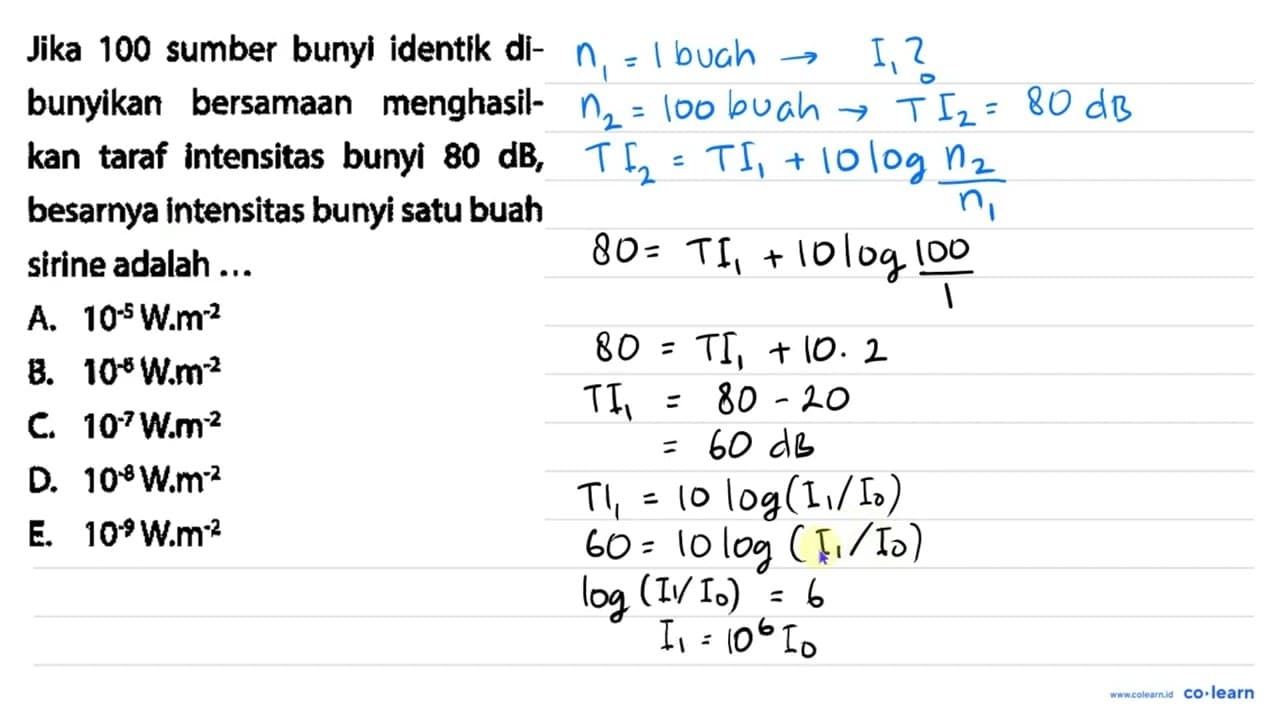 Jika 100 sumber bunyi identik di-
bunyikan bersamaan menghasil-
kan taraf intensitas bunyi 80 dB,
besarnya intensitas bunyi satu buah
sirine adalah ...
A. 10⁻⁵ W.m⁻²
B. 10⁻⁶ W.m⁻²
C. 10⁻⁷ W.m⁻²
D. 10⁻⁸ W.m⁻²
E. 10⁻⁹ W.m⁻²
n₁ = 1 buah → I₁ ?
n₂ = 100 buah → TI₂ = 80 dB
TI₂ = TI₁ + 10 log n₂/n₁
80 = TI₁ + 10 log 100/1
80 = TI₁ + 10 . 2
TI₁ = 80 - 20
= 60 dB
TI₁ = 10 log (I₁/I₀)
60 = 10 log (I₁/I₀)
log (I₁/I₀) = 6
I₁ = 10⁶ I₀
www.colearn.id co·learn